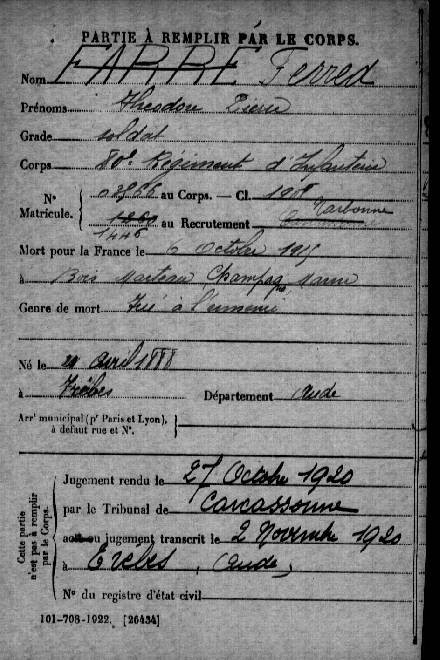 PARTIE À REMPLIR PAR LE CORPS.
Nom FARRE Ferred
Prénoms Théodore Pierre
Grade soldat
Corps 80e Régiment d'Infanterie
N° Matricule. 03566 au Corps. — Cl. 1908
1260 au Recrutement Narbonne
1446
Mort pour la France le 6 Octobre 1915
à Bois Marteau, Champagne Marne
Genre de mort Tué à l'ennemi
Né le 21 avril 1888
à Trèbes Département Aude
Arrt municipal (pr Paris et Lyon), à défaut rue et N°.
Cette partie n'est pas à remplir par le Corps.
Jugement rendu le 27 Octobre 1920
par le Tribunal de Carcassonne
acte ou jugement transcrit le 2 Novembre 1920
à Trebes, (Aude)
N° du registre d'état civil
101-708-1922. [26434]